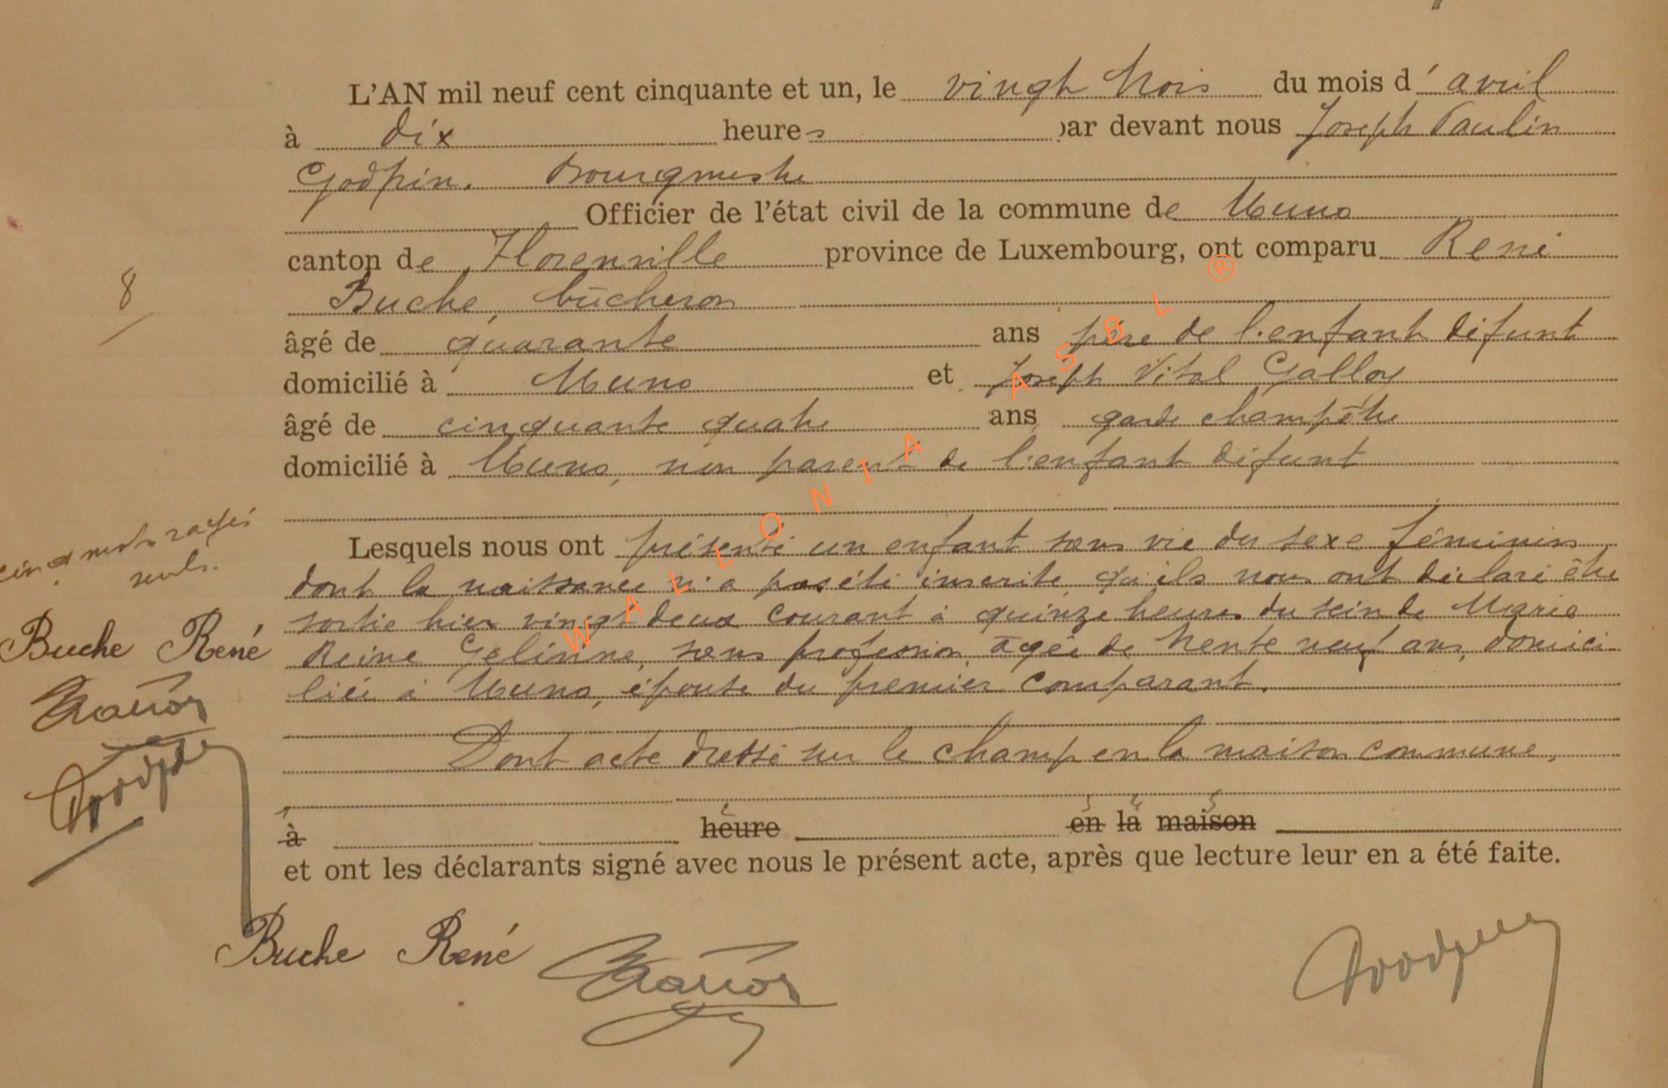 L'AN mil neuf cent cinquante et un, le vingt trois du mois d'avril
à dix heures par devant nous Joseph Paulin
Godfrin, Bourgmestre
Officier de l'état civil de la commune de Muno
canton de Florenville province de Luxembourg, ont comparu René
Buche, bûcheron
8
âgé de quarante ans père de l'enfant défunt
domicilié à Muno et Joseph Vital Galloy
âgé de cinquante quatre ans garde champêtre
domicilié à Muno, non parent de l'enfant défunt
cinq mots rayés
nuls.
Lesquels nous ont présenté un enfant sans vie du sexe féminin
dont la naissance n'a pas été inscrite, qu'ils nous ont déclaré être
sortie hier vingt deux courant à quinze heures du sein de Marie
Buche René
Reine Gelinne, sans profession, âgée de trente neuf ans, domici-
liée à Muno, épouse du premier comparant.
Dont acte dressé sur le champ en la maison commune,
à heure en la maison
1 2 3 4 5
et ont les déclarants signé avec nous le présent acte, après que lecture leur en a été faite.
Buche René
WALLONIA ASBL ®